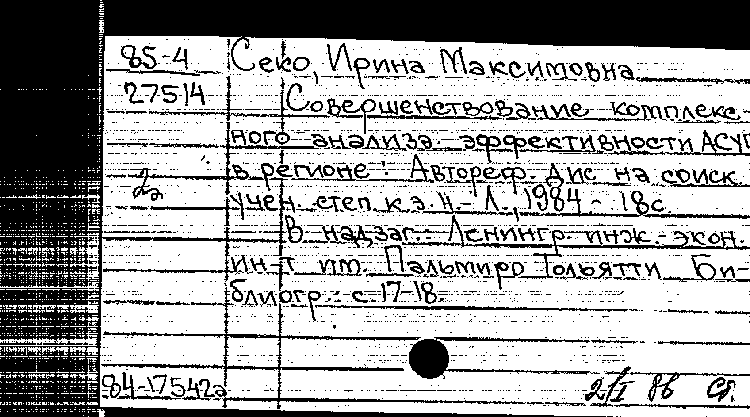 85-4
27514
2а
Секо, Ирина Максимовна
Совершенствование комплекс-
ного анализа эффективности АСУП
в регионе : Автореф. дис на соиск.
учен. степ. к.э.н. - Л., 1984. - 18с.
В надзаг.: Ленингр. инж.-экон.
ин-т им. Пальмиро Тольятти Би-
блиогр.: с. 17-18.
84-17542а
2/I 86